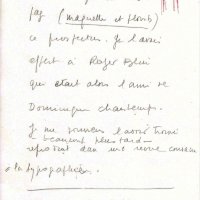 par (maquette et photo)
ce prospectus. Je l'avais
offert à Roger Blin
qui était alors l'ami de
Dominique
Je me souviens l'avoir trouvé
beaucoup plus tard
reproduit dans une revue
à la typographie.